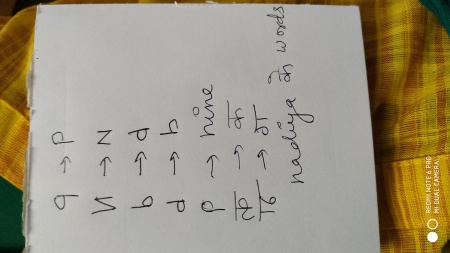 q → P
И → N
b → d
d → b
p → nine
→ क
→ ग
nadiya के words
REDMI NOTE 6 PRO
MI DUAL CAMERA